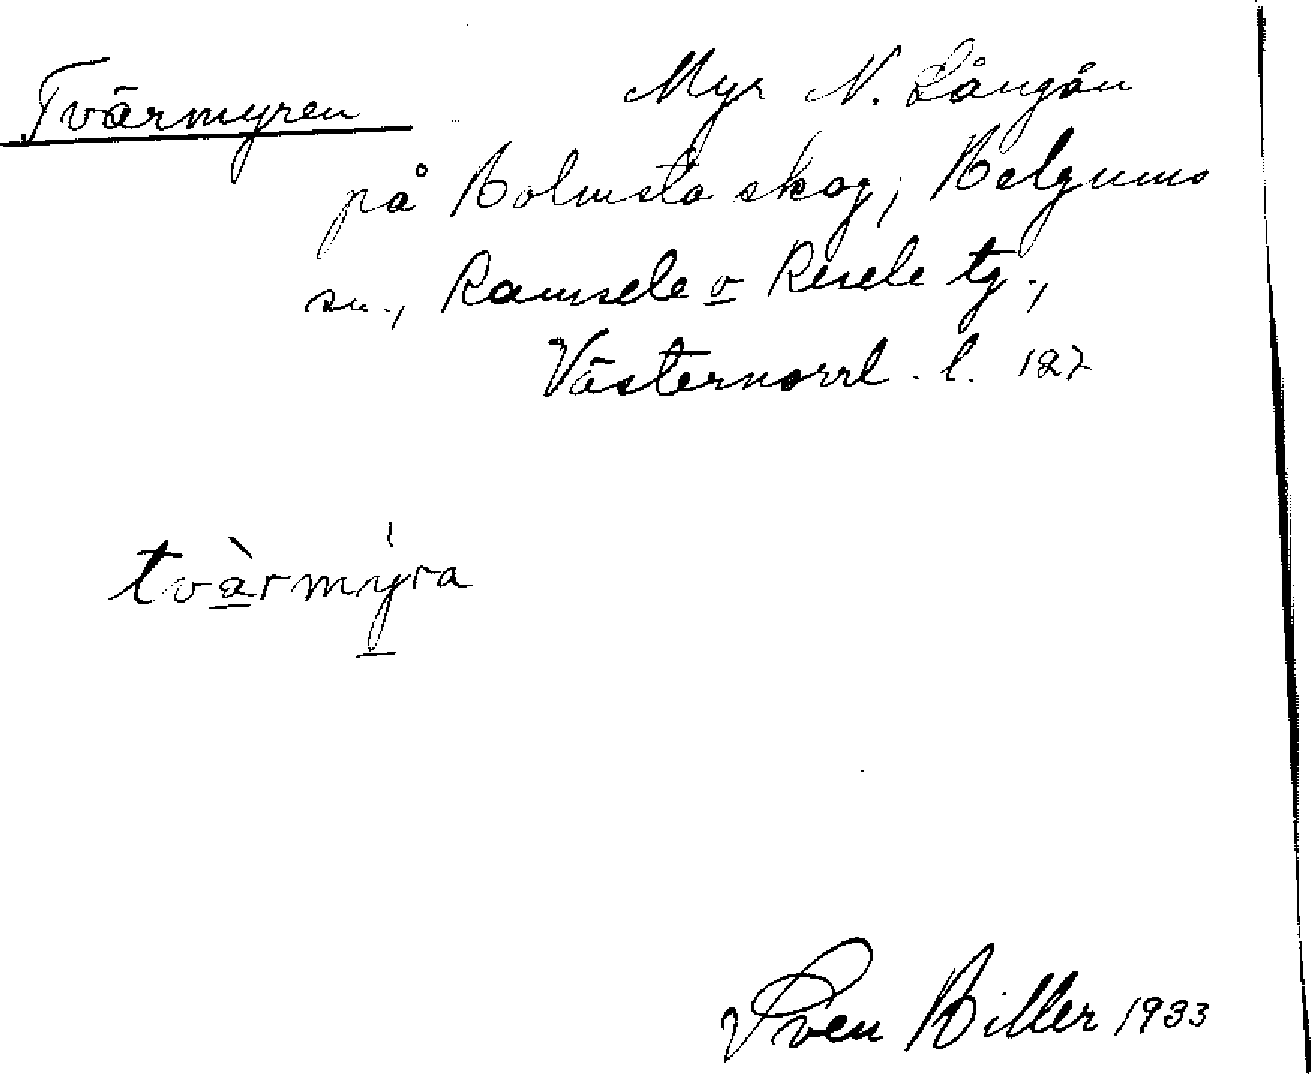 Tvärmyren Myr N. Långån
på Bolmsta skog, Helgums
sn., Ramsele o Resele tg.,
Västernorrl. l. 127
tvàrmýra
Sven Biller 1933